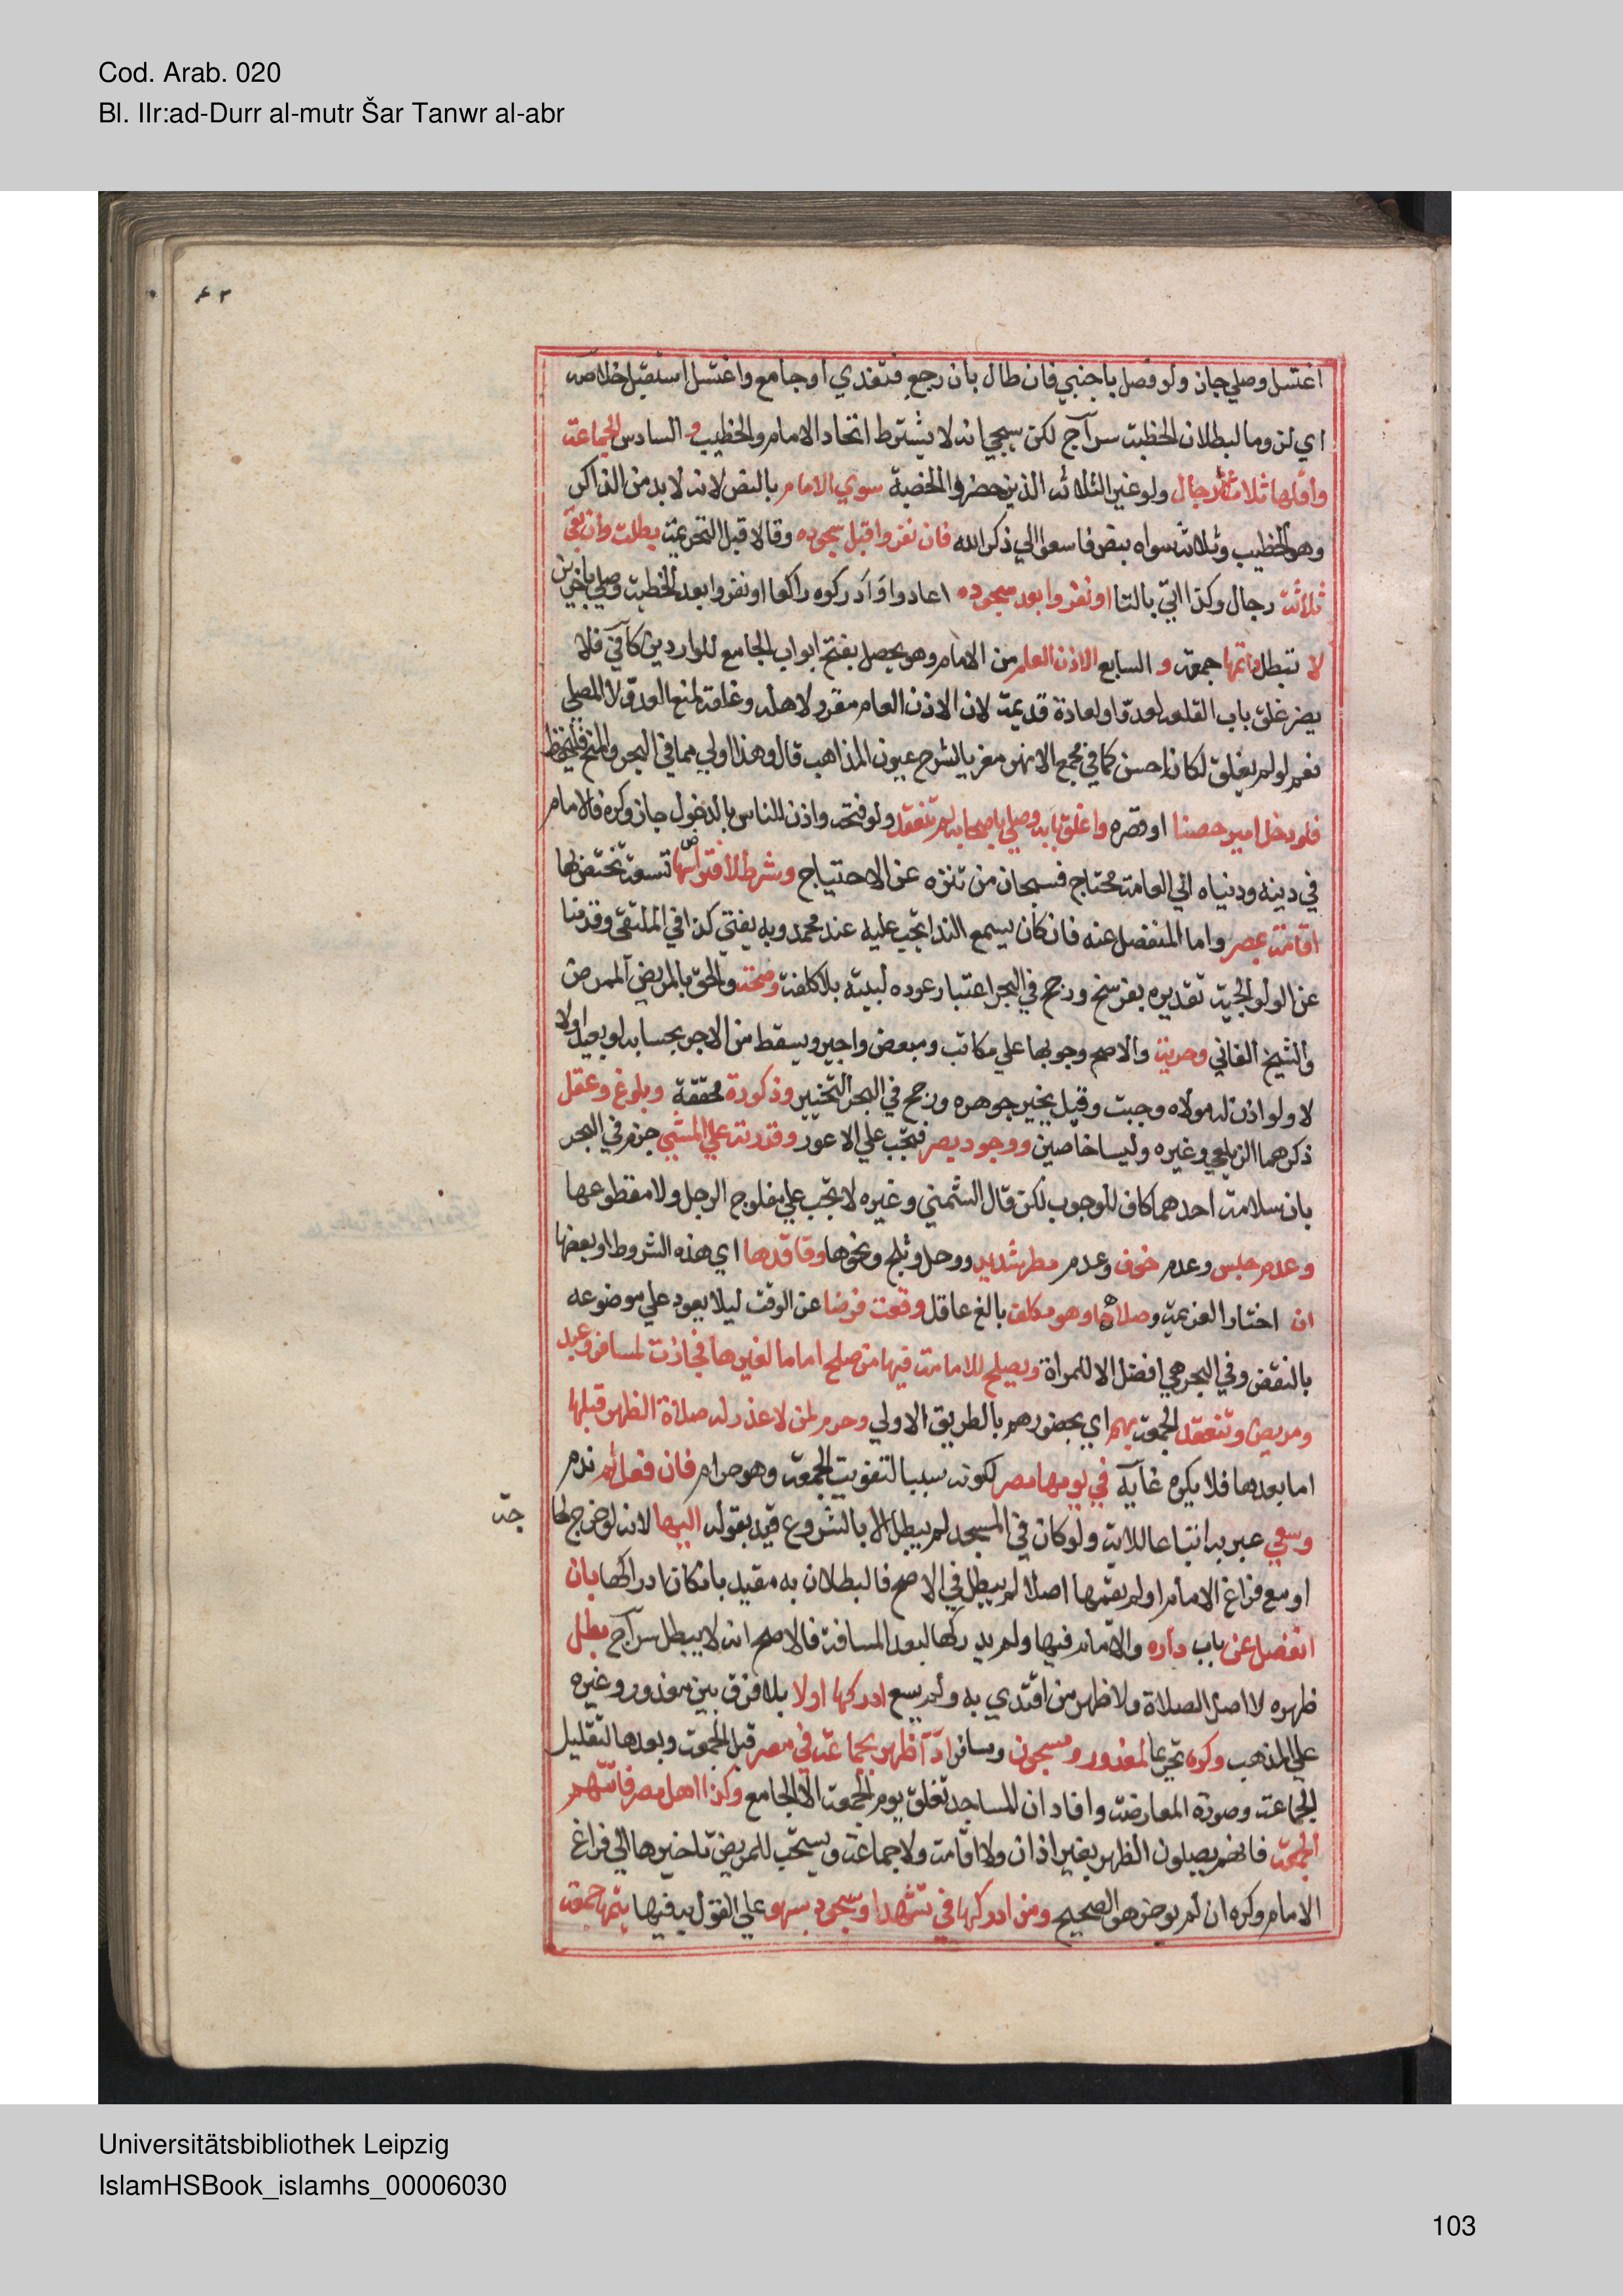 Cod. Arab. 020
Bl. IIr:ad-Durr al-mutr Šar Tanwr al-abr
٤٣
اغتسل وصلي جاز ولو فصل باجنبي فان طال بان رجع فتغدي او جامع واغتسل استقبل خلاصه
اي لزوما لبطلان الخطبة سراج لكن سيجي انه لا يشترط اتحاد الامام والخطيب و السادس الجماعة
واقلها ثلاثة رجال ولو غير الثلاثه الذين حضروا الخطبة سوي الامام بالنص لانه لا بد من الذاكر
وهو الخطيب وثلاثة سواه بنص فاسعوا الي ذكر الله فان نفروا قبل سجوده وقالا قبل التحريمة بطلت وان بقي
ثلاثة رجال وكذا اتي بالتا او نفروا بعد سجوده اعادوا وادركوه راكعا او نفروا بعد الخطبة وصلي باخرين
لا تبطل واتمها جمعة و السابع الاذن العام من الامام وهو يحصل بفتح ابواب الجامع للواردين كافي فلا
يضر غلق باب القلعه لعدو او لعادة قديمة لان الاذن العام مقرر لاهله وغلقه لمنع العدو لا المصلي
نعم لو لم يغلق لكان احسن كما في مجمع الانهر معزيا لشرح عيون المذاهب قال وهذا اولي مما في البحر والمنح فليحفظ
فلو دخل امير حصنا او قصره واغلق بابه وصلي باصحابه لم تنعقد ولو فتحه واذن للناس بالدخول جاز وكره فالامام
في دينه ودنياه الي العامة محتاج فسبحان من تنزه عن الاحتياج وشرط لافتراضها تسعة تختص بها
اقامة بمصر واما المنفصل عنه فان كان يسمع الندا تجب عليه عند محمد وبه يفتي كذا في الملتقي وقدمنا
عن الولوالجية تقديره بفرسخ ورجح في البحر اعتبار عوده لبيته بلا كلفة وصحة والحق بالمريض الممرض
والشيخ الفاني وحرية والاصح وجوبها علي مكاتب ومبعض واجير ويسقط من الاجر بحسابه لو بعيدا والا
لا ولو اذن له مولاه وجبت وقيل يخير جوهره ورجح في البحر التخيير وذكورة محققة وبلوغ وعقل
ذكرهما الزيلعي وغيره وليسا خاصين ووجود بصر فتجب علي الاعور وقدرته علي المشي جزم في البحر
بان سلامة احدهما كاف للوجوب لكن قال الشمني وغيره لا تجب علي مفلوج الرجل ولا مقطوعها
وعدم حبس وعدم خوف وعدم مطر شديد ووحل وثلج ونحوها وفاقدها اي هذه الشروط او بعضها
ان اختار العزيمة وصلاها وهو مكلف بالغ عاقل وقعت فرضا عن الوقت ليلا يعود علي موضوعه
بالنقض وفي البحر هي افضل الا للمراة ويصلح للامامة فيها من صلح اماما لغيرها فجازت لمسافر وعبد
ومريض وتنعقد الجمعة بهم اي بحضورهم بالطريق الاولي وحرم لمن لا عذر له صلاة الظهر قبلها
اما بعدها فلا يكره غاية في يومها بمصر لكونه سببا لتفويت الجمعة وهو حرام فان فعل ثم ندم
وسعي عبر به اتباعا للاية ولو كان في المسجد لم يبطل الا بالشروع قيد بقوله اليها لانه لو خرج لحا
جة
او مع فراغ الامام او لم يقمها اصلا لم يبطل في الاصح فالبطلان به مقيد بامكان ادراكها بان
انفصل عن باب داره والامام فيها ولم يدركها لبعد المسافة فالاصح انه لا يبطل سراج بطل
ظهره لا اصل الصلاة ولا ظهر من اقتدي به ولم يسع ادركها اولا بلا فرق بين معذور وغيره
علي المذهب وكره تحريما لمعذور ومسجون ومسافر اداء ظهر بجماعة في مصر قبل الجمعة وبعدها لتقليل
الجماعة وصورة المعارضة وافاد ان المساجد تغلق يوم الجمعة الا الجامع وكذا اهل مصر فاتتهم
الجمعة فانهم يصلون الظهر بغير اذان ولا اقامة ولا جماعة ويستحب للمريض تاخيرها الي فراغ
الامام وكره ان لم يوخر هو الصحيح ومن ادركها في تشهد او سجود سهو علي القول به فيها يتمها جمعة
Universitätsbibliothek Leipzig
IslamHSBook_islamhs_00006030
103